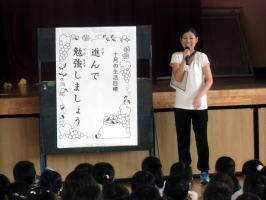 十月の生活目標
進んで
勉強しましょう